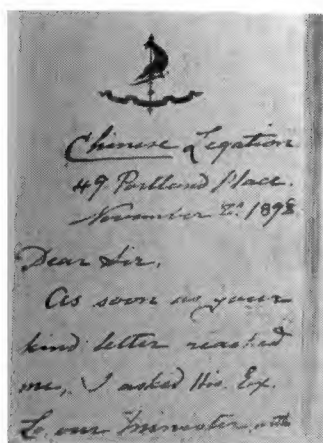 Chinese Legation
49 Portland Place.
November 1898
Dear Sir,
As soon as your
kind letter reached
me, I asked His Ex.
Lo our Minister with